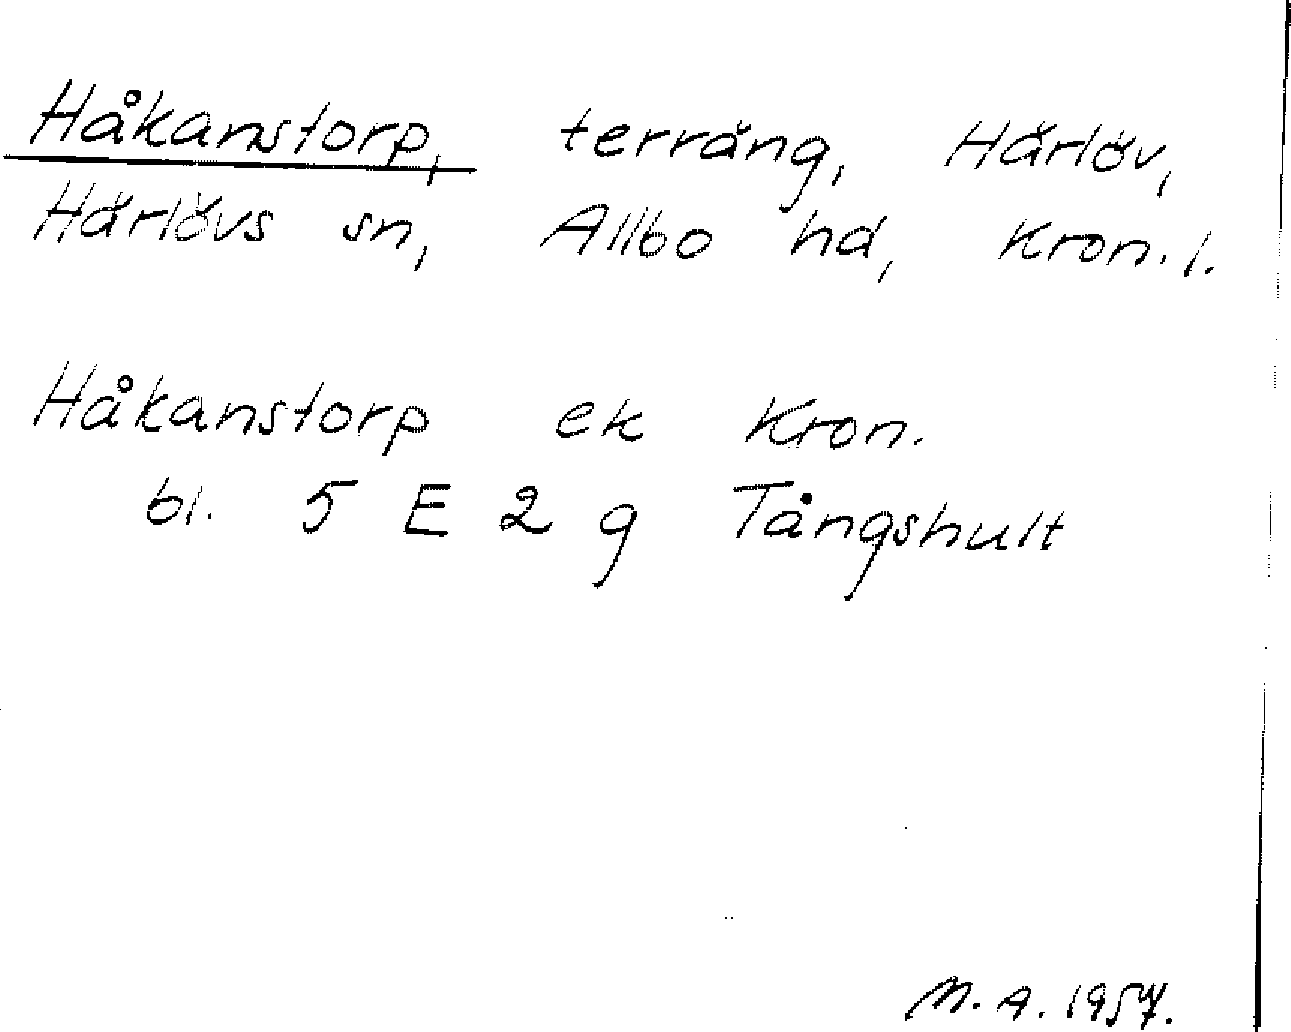 Håkanstorp, terräng, Härlöv,
Härlövs sn, Allbo hd, Kron. l.
Håkanstorp ek Kron.
bl. 5 E 2 g Tångshult
M. A. 1957.